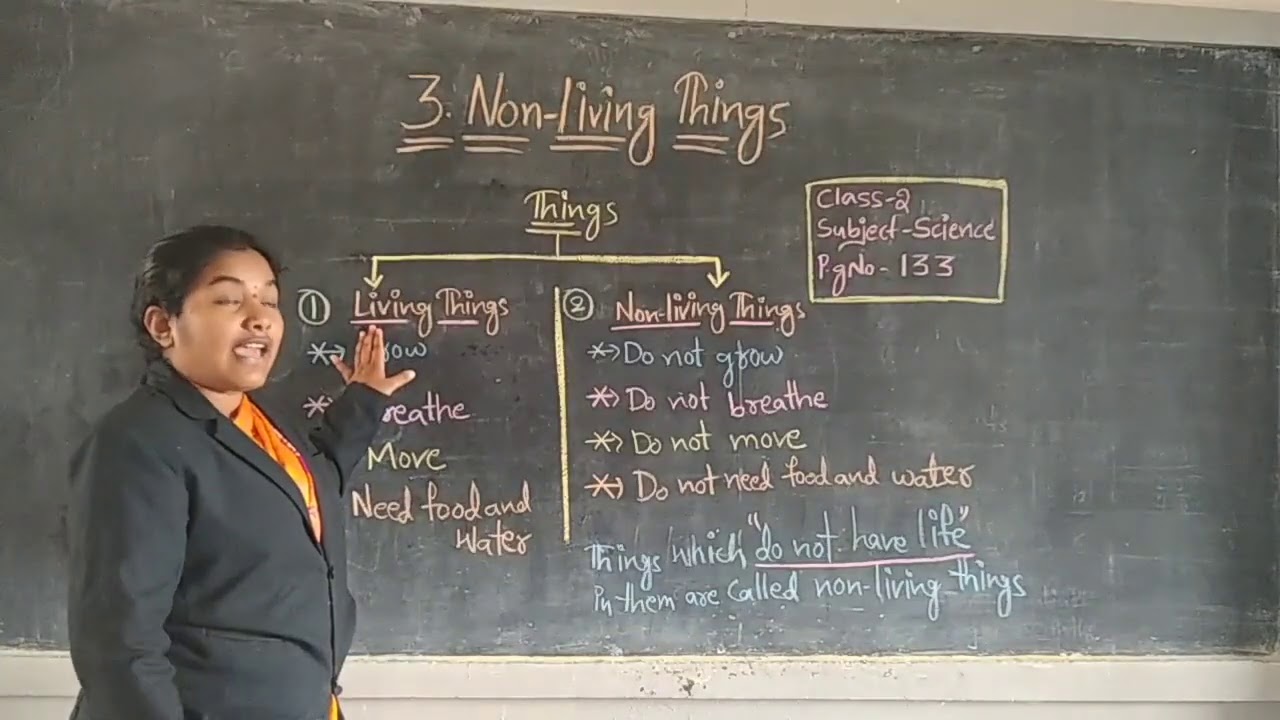 3. Non-living Things
Things
Class-2
Subject-Science
P.gNo - 133
① Living Things
② Non-living Things
*→ Grow
*→ Do not grow
*→ Breathe
*→ Do not breathe
Move
*→ Do not move
Need food and
Water
*→ Do not need food and water
Things which "do not have life"
in them are called non-living things